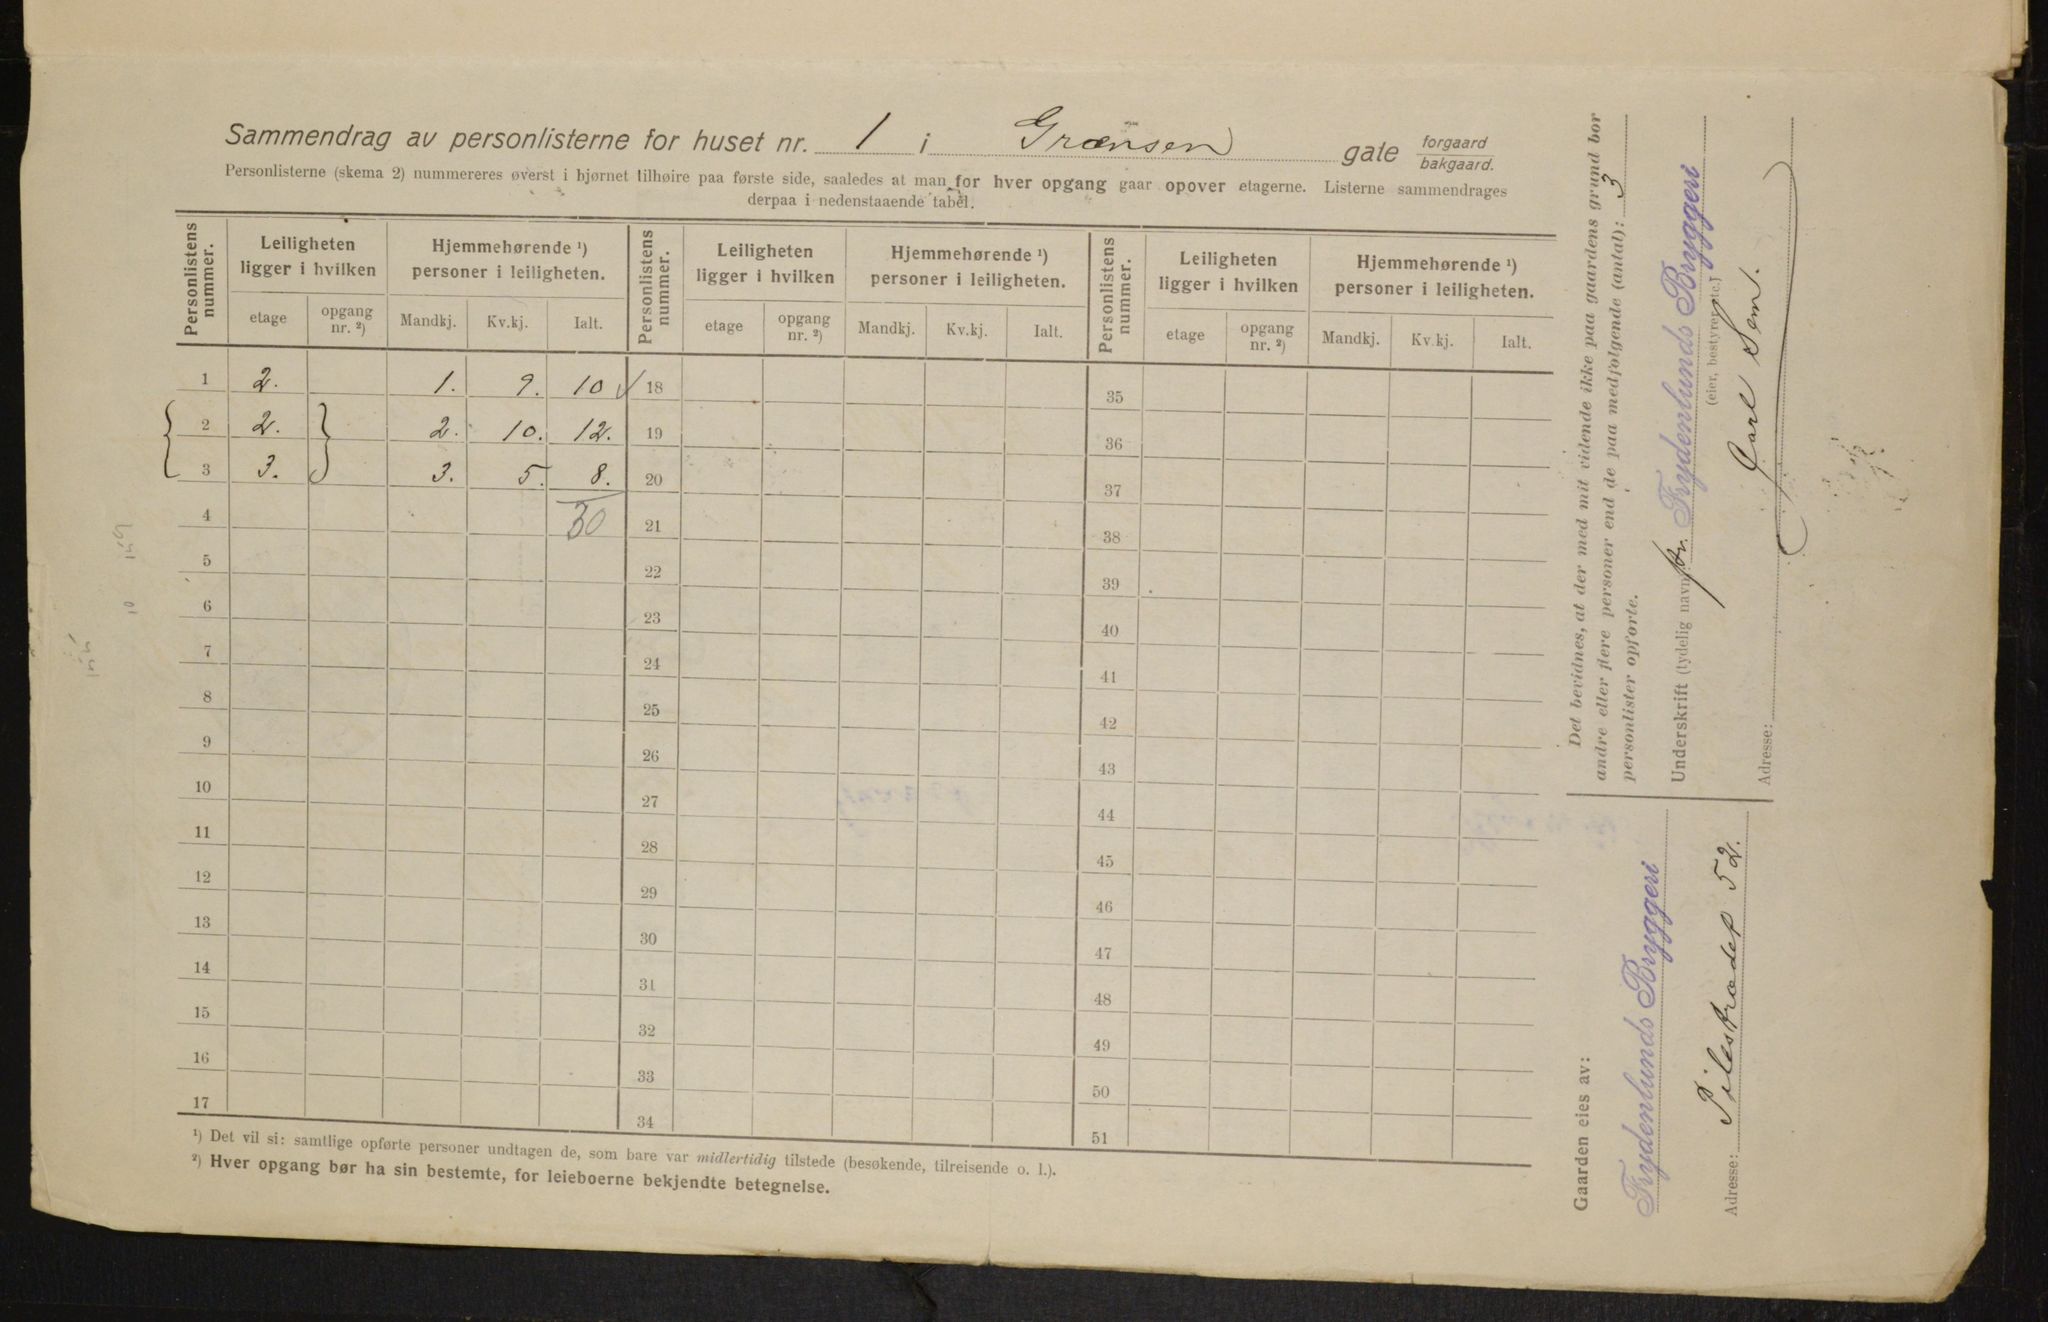 Sammendrag av personlisterne for huset nr. 1 i Grænsen gate forgaard bakgaard.
Personlisterne (skema 2) nummereres øverst i hjørnet tilhøire paa første side, saaledes at man for hver opgang gaar opover etagerne. Listerne sammendrages
derpaa i nedenstaaende tabel.
Personlistens nummer. Leiligheten ligger i hvilken Hjemmehørende ¹) personer i leiligheten. Personlistens nummer. Leiligheten ligger i hvilken Hjemmehørende ¹) personer i leiligheten. Personlistens nummer. Leiligheten ligger i hvilken Hjemmehørende ¹) personer i leiligheten.
etage opgang nr. ²) Mandkj. Kv.kj. Ialt. etage opgang nr. ²) Mandkj. Kv.kj. Ialt. etage opgang nr. ²) Mandkj. Kv.kj. Ialt.
1 2. 1. 9. 10 18 35
2 2. 2. 10. 12. 19 36
3 3. 3. 5. 8. 20 37
4 30 21 38
5 22 39
6 23 40
7 24 41
8 25 42
9 26 43
10 27 44
11 28 45
12 29 46
13 30 47
14 31 48
15 32 49
16 33 50
17 34 51
¹) Det vil si: samtlige opførte personer undtagen de, som bare var midlertidig tilstede (besøkende, tilreisende o. l.).
²) Hver opgang bør ha sin bestemte, for leieboerne bekjendte betegnelse.
Det bevidnes, at der med mit vidende ikke paa gaardens grund bor
andre eller flere personer end de paa medfølgende (antal): 3
personlister opførte.
Underskrift (tydelig navn): for Frydenlunds Bryggeri
(eier, bestyrer etc.)
Carl Sem.
Adresse:
Gaarden eies av:
Frydenlunds Bryggeri
Adresse: Pilestrædet 52.